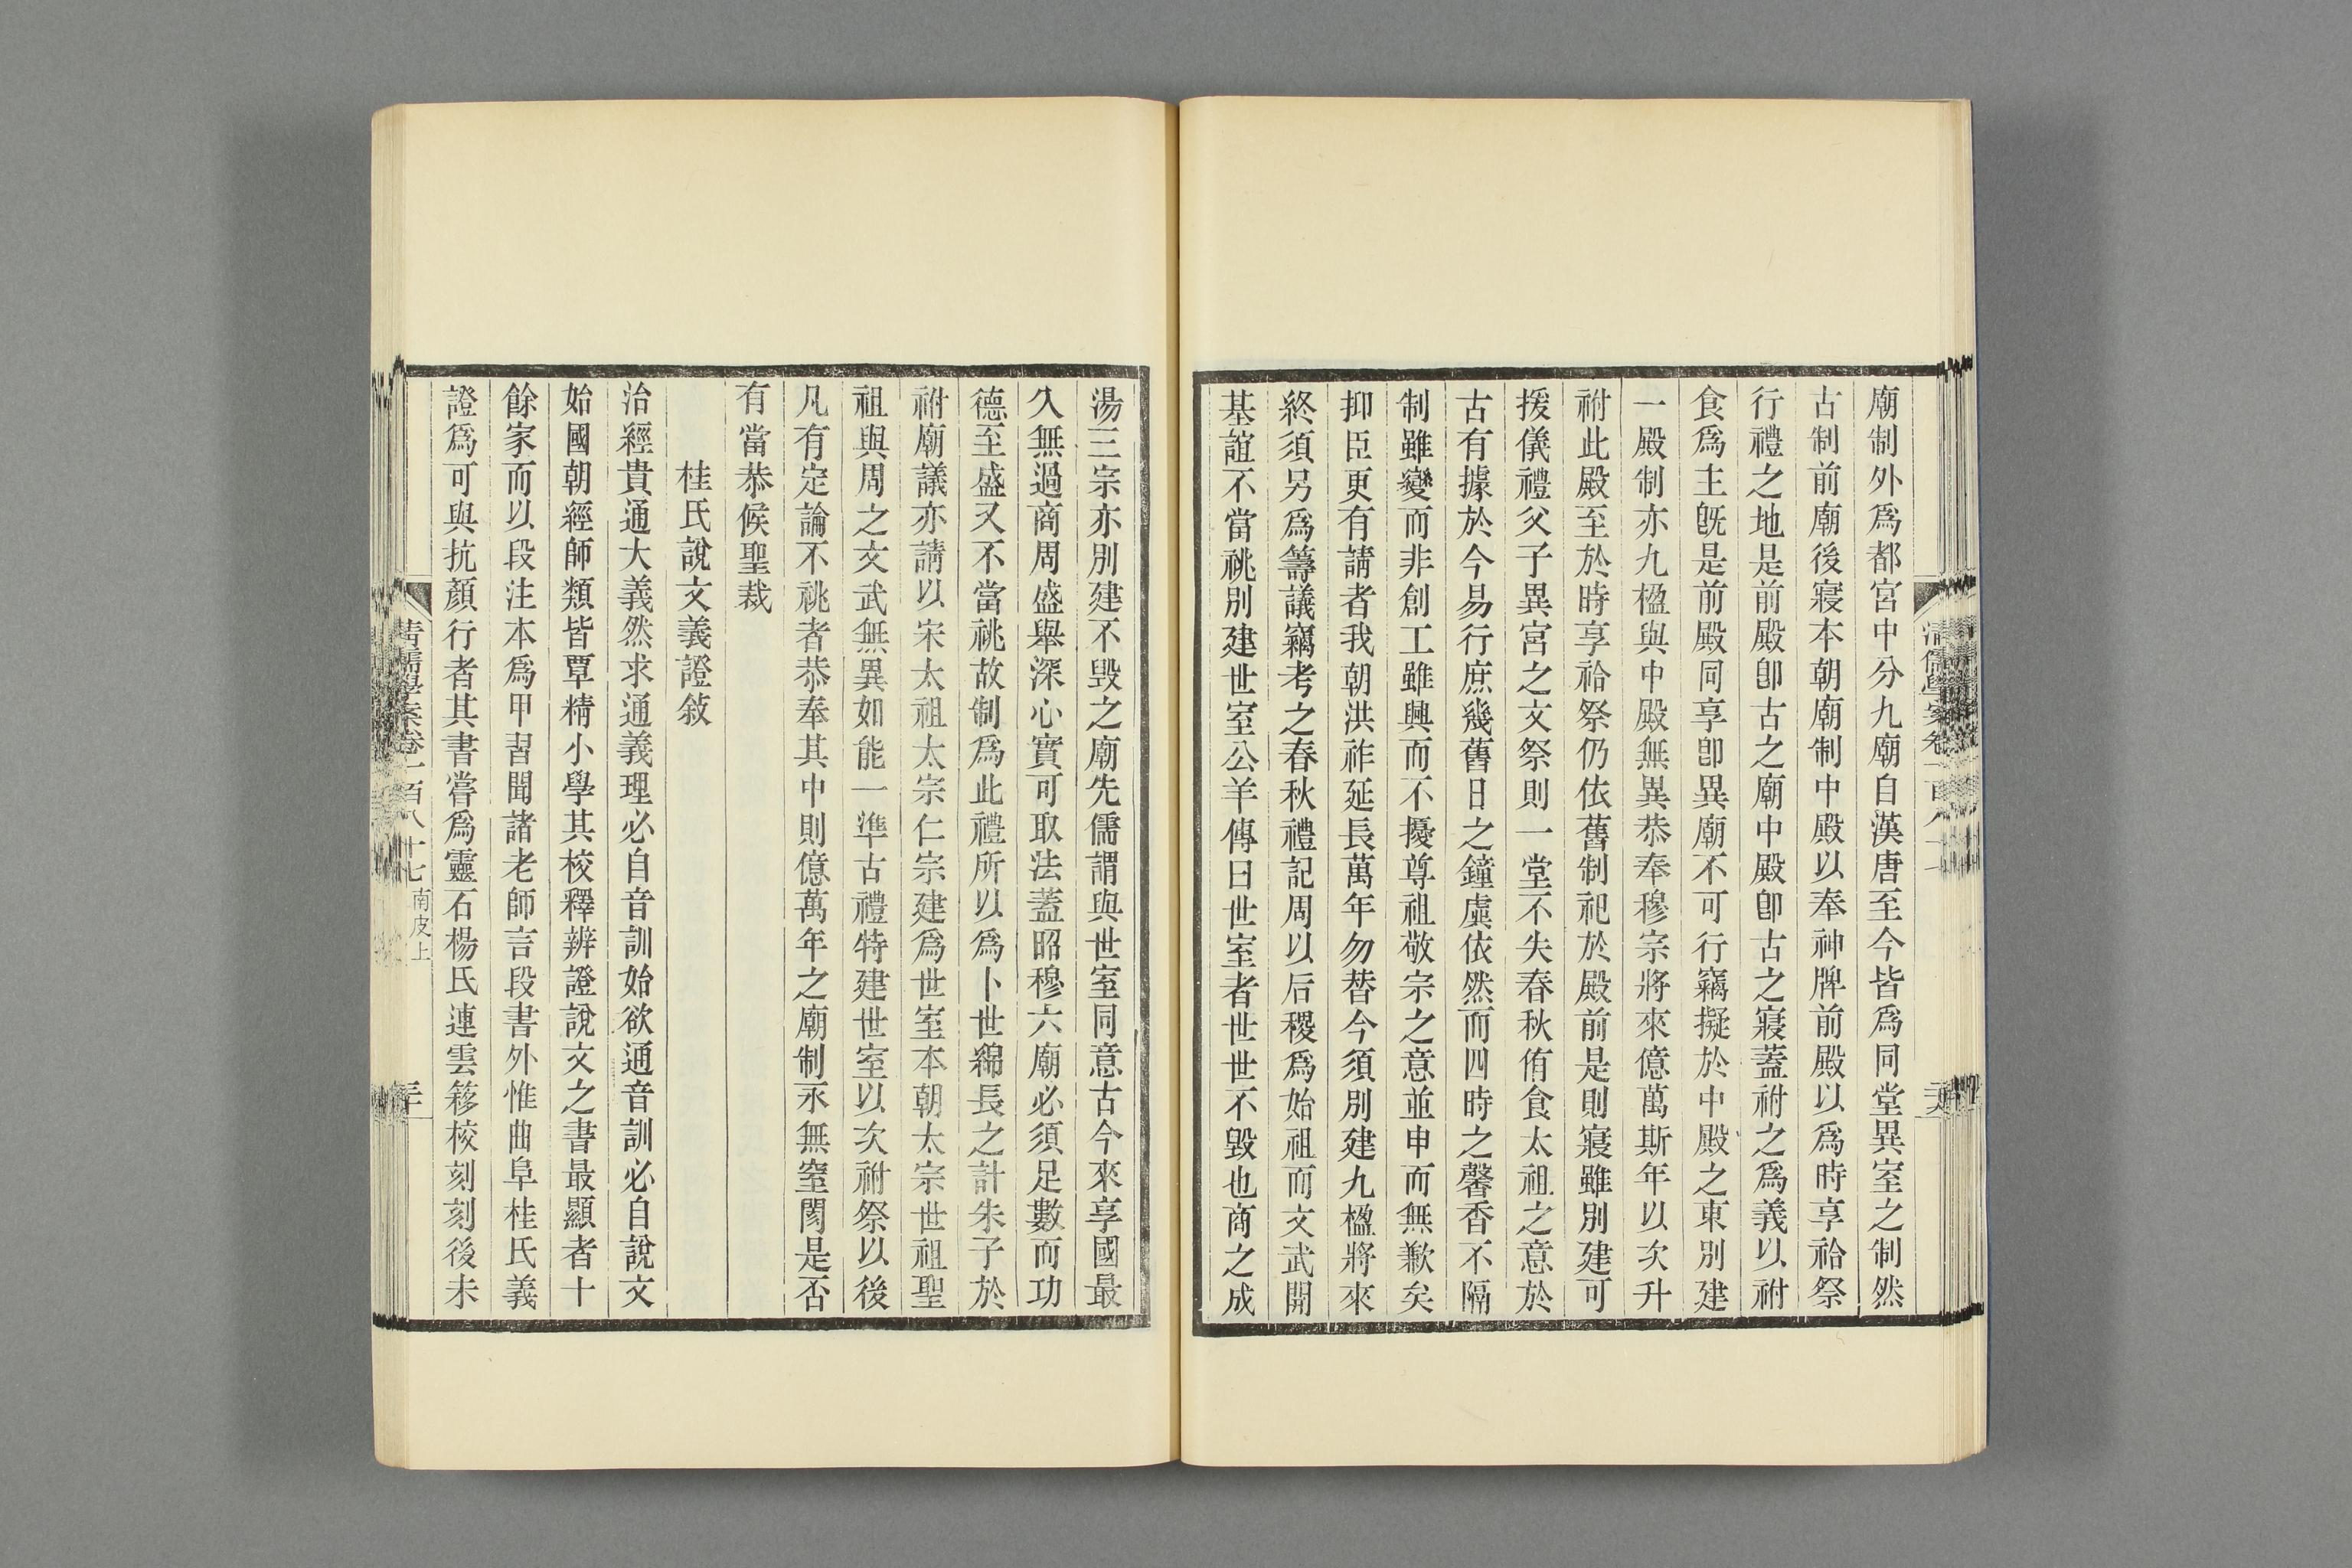 廟制外爲都宮中分九廟自漢唐至今皆爲同堂異室之制然
古制前廟後寢本朝廟制中殿以奉神牌前殿以爲時享祫祭
行禮之地是前殿卽古之廟中殿卽古之寢蓋祔之爲義以祔
食爲主旣是前殿同享卽異廟不可行竊擬於中殿之東別建
一殿制亦九楹與中殿無異恭奉穆宗將來億萬斯年以次升
祔此殿至於時享祫祭仍依舊制祀於殿前是則寢雖別建可
援儀禮父子異宮之文祭則一堂不失春秋侑食太祖之意於
古有據於今易行庶幾舊日之鐘虡依然而四時之馨香不隔
制雖變而非創工雖興而不擾尊祖敬宗之意並申而無歉矣
抑臣更有請者我朝洪祚延長萬年勿替今須別建九楹將來
終須另爲籌議竊考之春秋禮記周以后稷爲始祖而文武開
基誼不當祧別建世室公羊傳曰世室者世世不毀也商之成
湯三宗亦別建不毀之廟先儒謂與世室同意古今來享國最
久無過商周盛舉深心實可取法蓋昭穆六廟必須足數而功
德至盛又不當祧故制爲此禮所以爲卜世綿長之計朱子於
祔廟議亦請以宋太祖太宗仁宗建爲世室本朝太宗世祖聖
祖與周之文武無異如能一準古禮特建世室以次祔祭以後
凡有定論不祧者恭奉其中則億萬年之廟制永無窒閡是否
有當恭候聖裁
桂氏說文義證敍
治經貴通大義然求通義理必自音訓始欲通音訓必自說文
始國朝經師類皆覃精小學其校釋辨證說文之書最顯者十
餘家而以段注本爲甲習聞諸老師言段書外惟曲阜桂氏義
證爲可與抗顏行者其書嘗爲靈石楊氏連雲簃校刻刻後未
清儒學案卷一百八十七 南皮上